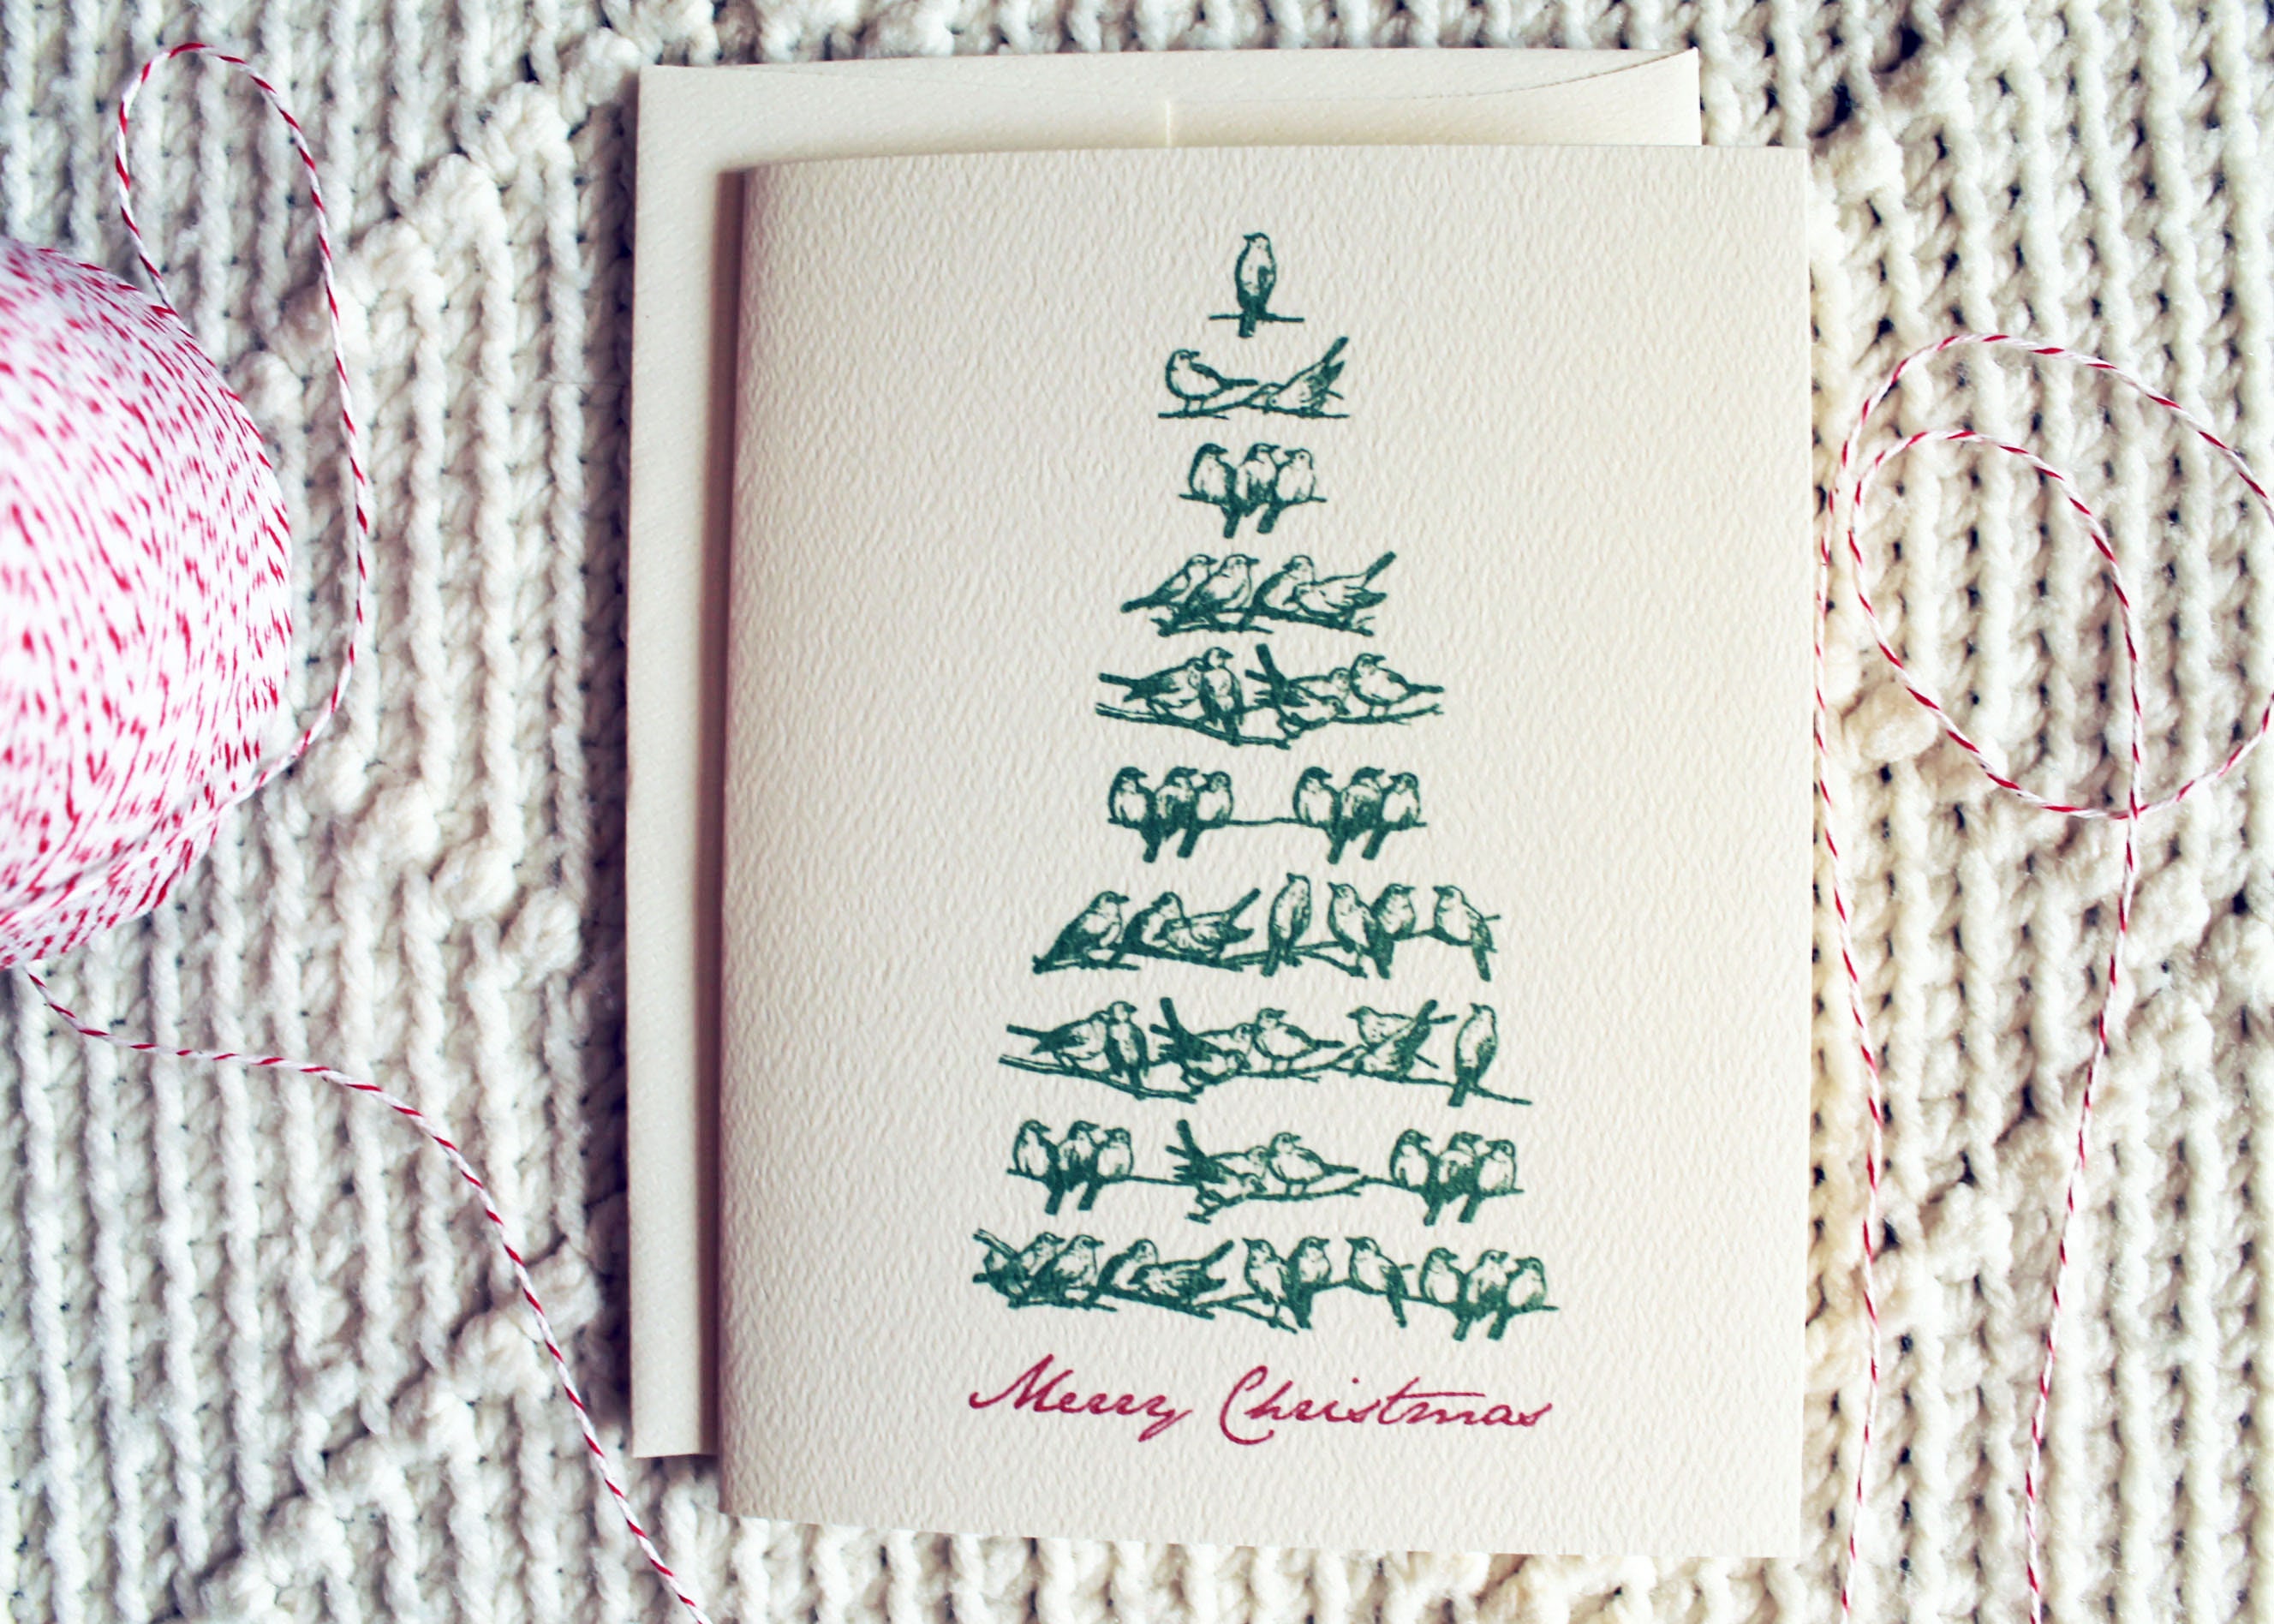 Merry Christmas